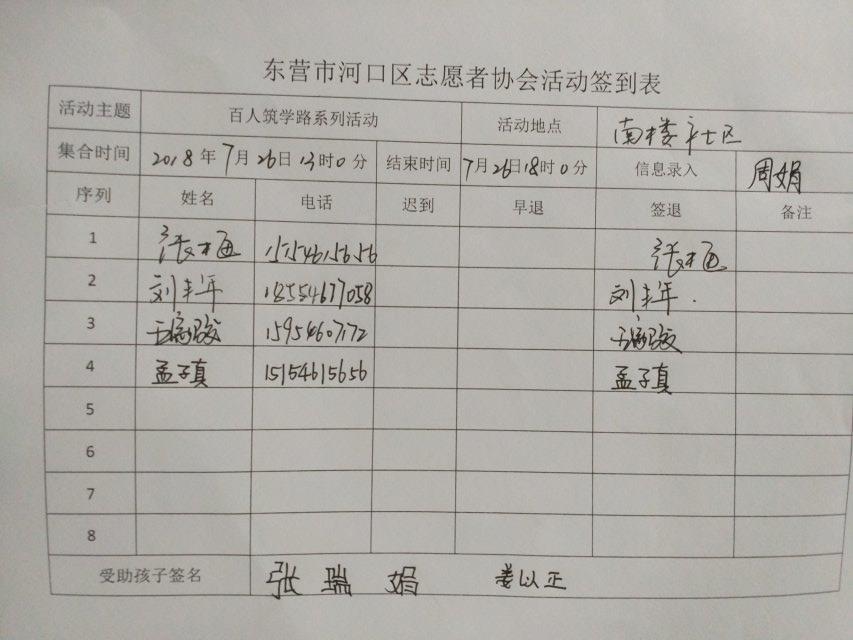 东营市河口区志愿者协会活动签到表
活动主题 百人筑学路系列活动 活动地点 南楼社区
集合时间 2018年7月26日13时0分 结束时间 7月26日18时0分 信息录入 周娟
序列 姓名 电话 迟到 早退 签退 备注
1 张 15154615656 张
2 刘丰年 18554677058 刘丰年.
3 15954607172
4 孟子真 15154615656 孟子真
5
6
7
8
受助孩子签名 张瑞娟 姜以正